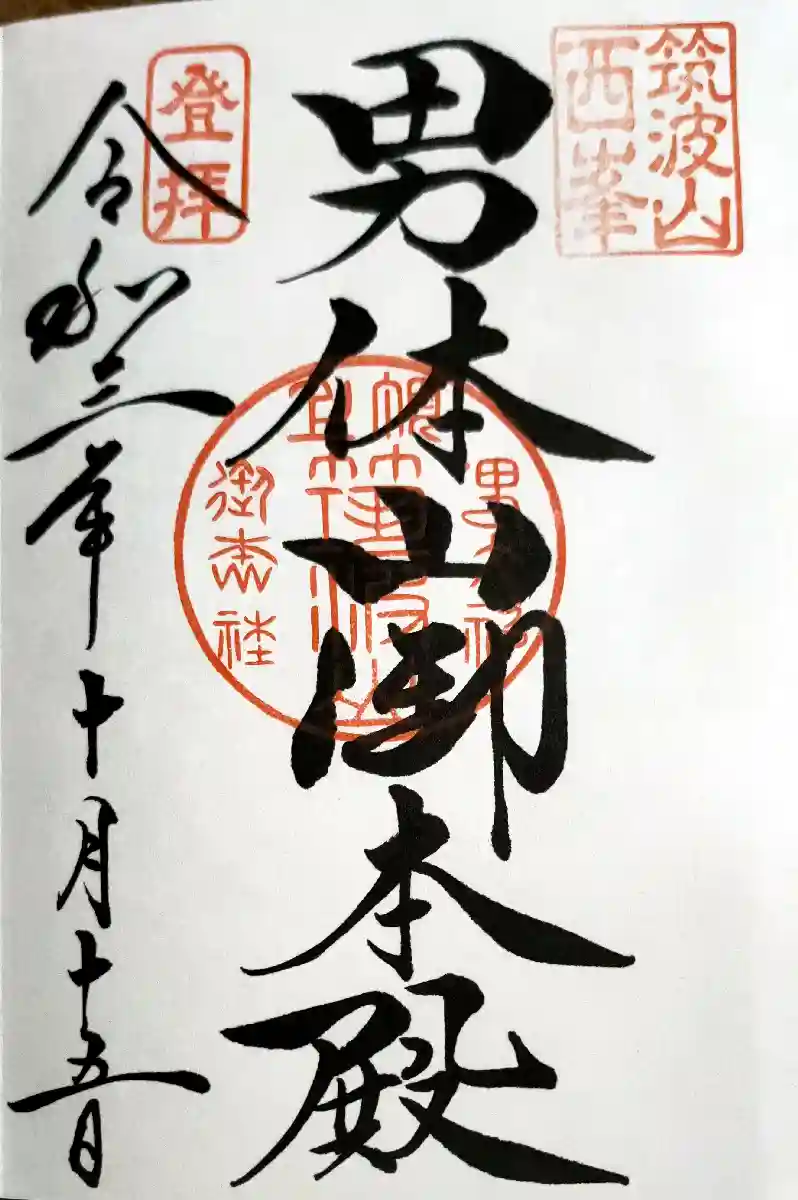 筑波山
西峯
男体山御本殿
登拝
令和三年十月十五日
御本社